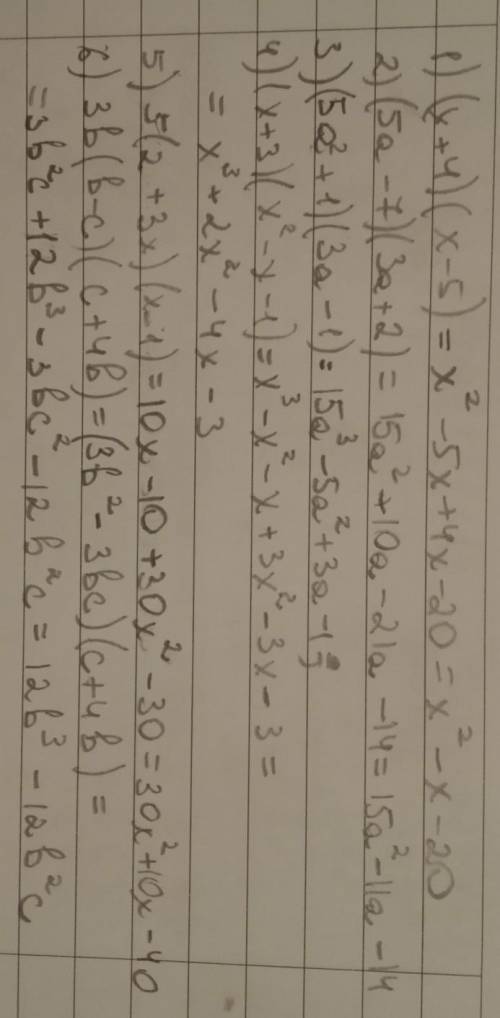 1) (x+4)(x-5) = x² - 5x + 4x - 20 = x² - x - 20
2) (5a - 7)(3a + 2) = 15a² + 10a - 21a - 14 = 15a² - 11a - 14
3) (5a² + 1)(3a - 1) = 15a³ - 5a² + 3a - 1;
4) (x+3)(x² - x - 1) = x³ - x² - x + 3x² - 3x - 3 =
= x³ + 2x² - 4x - 3
5) 5(2 + 3x)(x - 1) = 10x - 10 + 30x² - 30 = 30x² + 10x - 40
6) 3b(b - c)(c + 4b) = (3b² - 3bc)(c + 4b) =
= 3b²c + 12b³ - 3bc² - 12b²c = 12b³ - 12b²c